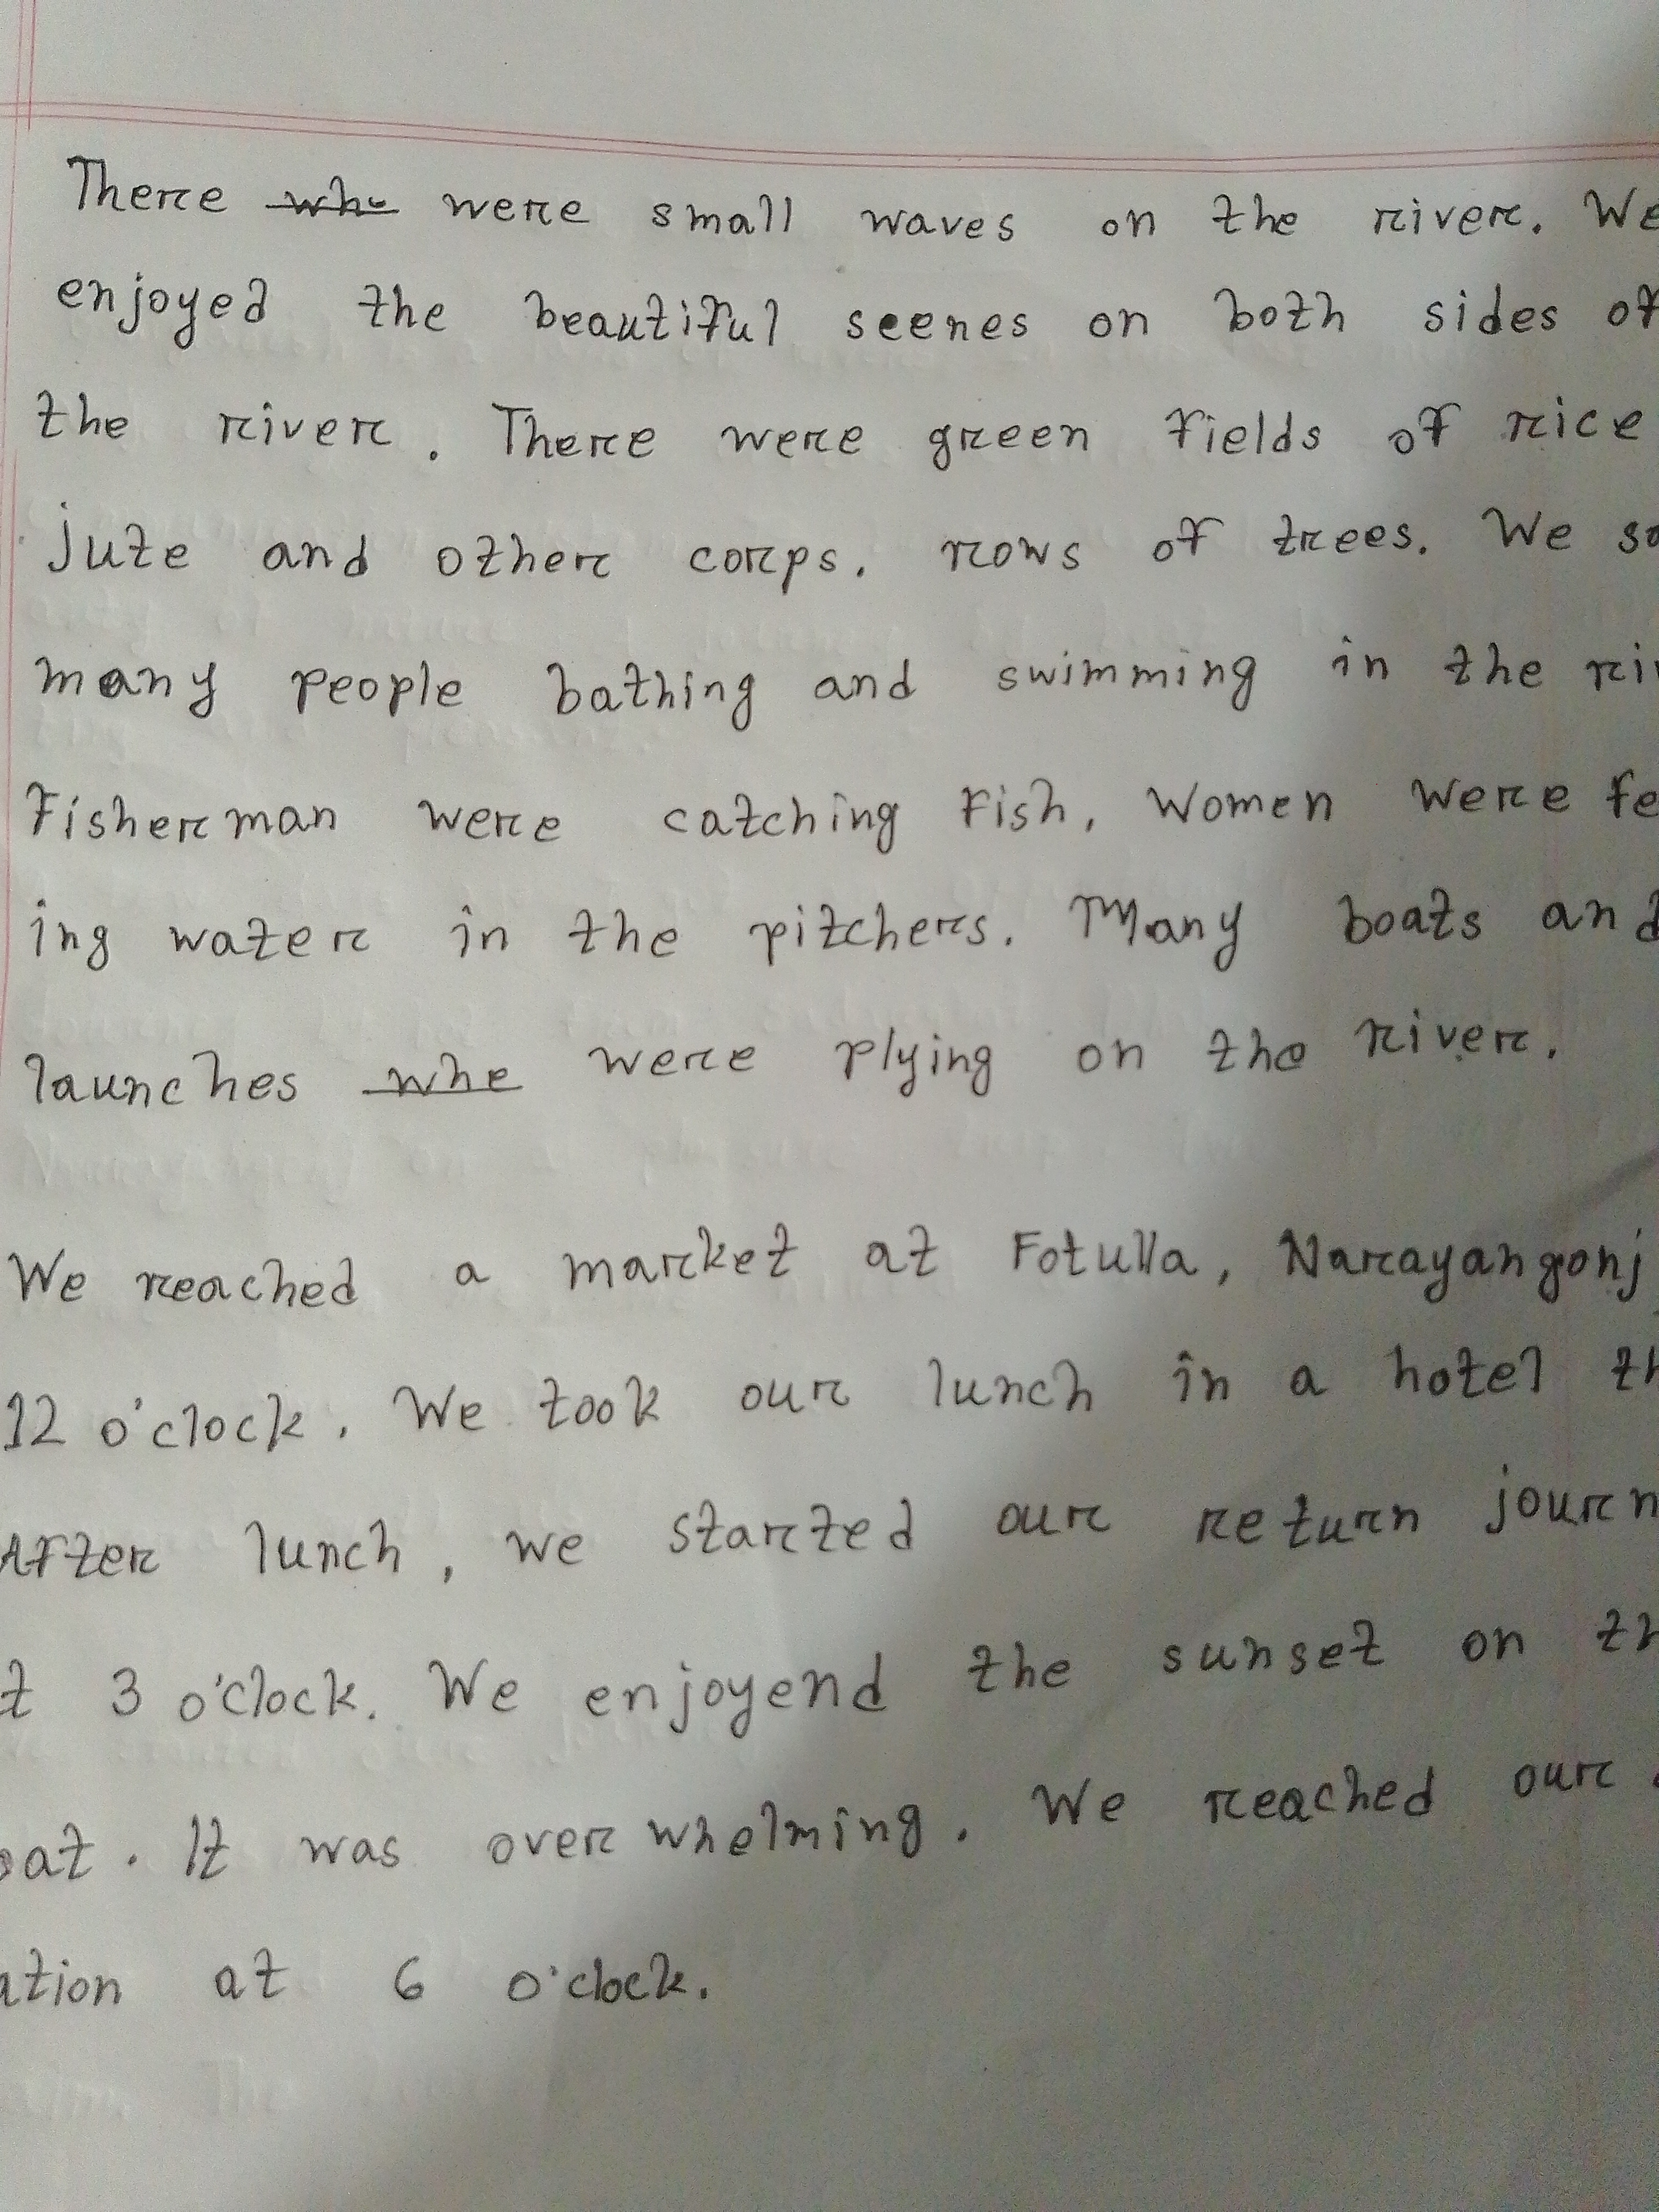 There who were small waves on the river. We
enjoyed the beautiful seenes on both sides of
the river. There were green fields of rice
jute and other corps. rows of trees. We
many people bathing and swimming in the
Fisherman were catching fish, Women were fe
ing water in the pitchers. Many boats and
launches whe were plying on the river.
We reached a market at Fotulla, Narayangonj
12 o'clock. We took our lunch in a hotel
After lunch, we started our return journ
t 3 o'clock. We enjoyend the sunset on th
oat. It was over whelming. We reached our
ation at 6 o'clock.